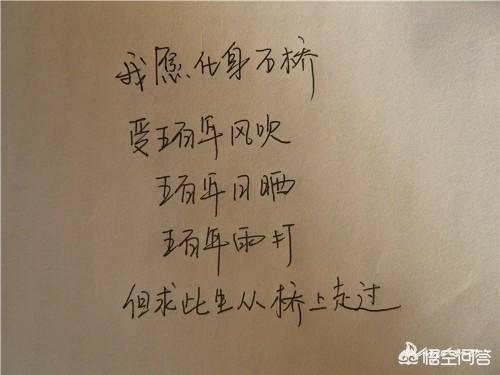 我愿化身石桥
受五百年风吹
五百年日晒
五百年雨打
但求此生从桥上走过
悟空问答